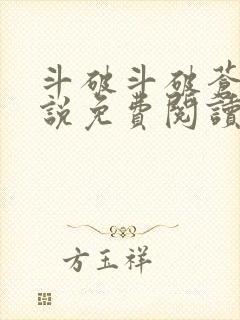 斗破斗破蒼
説免費閱讀
方玉祥